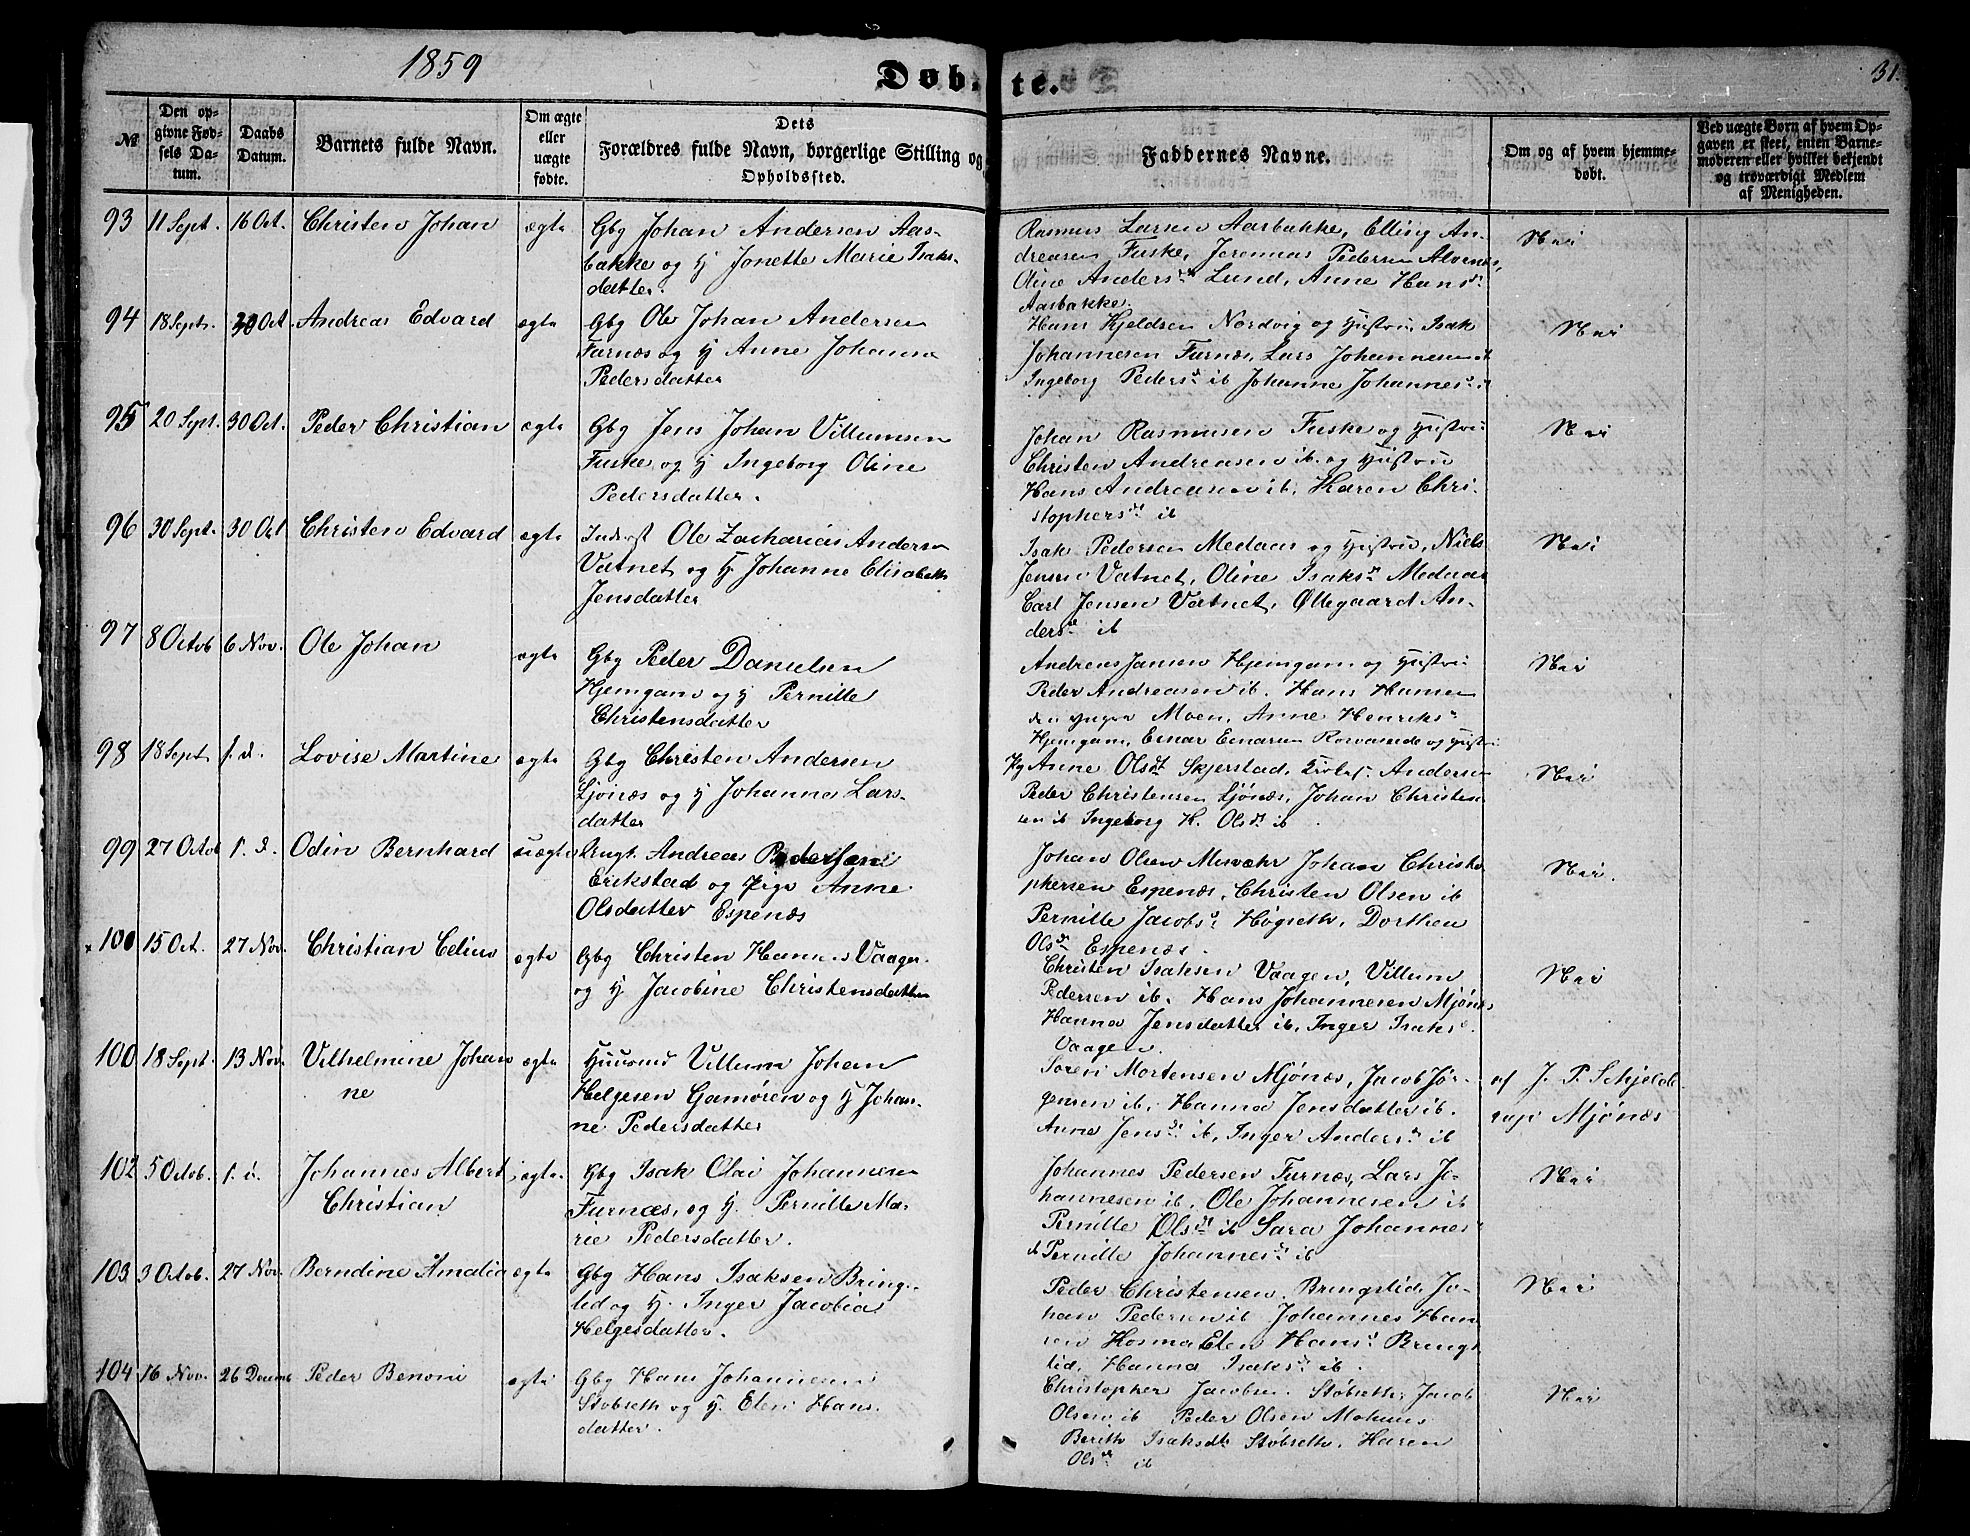 1859
Døbte.
31.
№
Den opgivne Fødsels Datum.
Daabs Datum.
Barnets fulde Navn.
Om ægte eller uægte fødte.
Dets Forældres fulde Navn, borgerlige Stilling og Opholdssted.
Faddernes Navne.
Om og af hvem hjemmedøbt.
Ved uægte Børn af hvem Opgaven er skeet, enten Barnemoderen eller hvilket bekjendt og troværdigt Medlem af Menigheden.
93 11 Sept. 16 Oct. Christen Johan ægte
Gbg Johan Andersen Aas-
bakke og H Jonette Marie Isaks-
datter.
Rasmus Larsen Aasbakke, Elling An-
dreasen Fuske, Jeremias Pedersen Alvenes,
Oline Andersdt Lund, Anne Hansdt
Aasbakke.
Nei
94 18 Sept. 30 Oct. Andreas Edvard ægte
Gbg Ole Johan Andersen
Furnæs og H Anne Johanna
Pedersdatter
Hans Kjeldsen Nordvig og Hustru, Isak
Johannesen Furnæs, Lars Johannesen ib
Ingeborg Pedersdt ib Johanne Johannesdt
Nei
95 20 Sept. 30 Oct. Peder Christian ægte
Gbg Jens Johan Villumsen
Fuske, og H Ingeborg Oline
Pedersdatter.
Johan Rasmusen Fuske og Hustru
Christen Andreasen ib. og Hustru
Hans Andreasen ib, Karen Chri-
stophersdt ib
Nei
96 30 Sept. 30 Oct Christen Edvard ægte
Inderst Ole Zacharias Andersen
Vatnet og H Johanne Elisabeth
Jensdatter
Isak Pedersen Medaas og Hustru, Niels
Jensen Vatnet, Oline Isaksdt Medaas
Carl Jensen Vatnet, Øllegaard An-
dersdt ib
Nei
97 8 Octob 6 Nov. Ole Johan ægte
Gbg Peder Danielsen
Hjemgam og H Pernille
Christensdatter
Andreas Jansen Hjemgam og Hustru
Peder Andreasen ib. Hans Hansen
den yngre Moen, Anne Henriksdt
Hjemgam, Einar Einarsen og Hustru
Nei
98 18 Sept. s. d. Lovise Martine ægte
Gbg Christen Andersen
Ljønæs og H Johanna Lars-
datter
Pg Anne Olsdt Skjerstad, Andersen
Peder Christensen Ljønæs, Johan Christen-
sen ib Ingeborg K. Olsdt ib
Nei
99 27 Octob s. d. Odin Bernhard uægte
Ungk. Andreas Pedersen
Erikstad og Pige Anne
Olsdatter Espenæs
Johan Olsen Misvær Johan Christo-
phersen Espenæs, Christen Olsen ib
Pernille Jacobsdt Høgseth, Dorthea
Olsdt Espenæs.
Nei.
101 15 Oct. 27 Nov. Christian Celius ægte
Gbg Christen Hansen Vaagen
og H Jacobine Christensdatter
Christen Isaksen Vaagen, Villum
Pedersen ib. Hans Johannesen Mjønæs
Hanna Jensdatter ib, Inger Isaksdt
Vaagen.
Nei
100 18 Sept. 13 Nov. Vilhelmine Johan
ne ægte
Huusmd Villum Johan
Helgesen Gamøren og H Johan-
ne Pedersdatter
Søren Mortensen Mjønæs, Jacob Jør-
gensen ib, Hanna Jensdatter ib.
Anne Jensdt ib, Inger Andersdt ib
af J. P. Schjeld-
rup Mjønæs
102 5 Octob. s. d. Johannes Albert
Christian ægte
Gbg Isak Olai Johannesen
Furnæs, og H. Pernille Ma-
rie Pedersdatter.
Johannes Pedersen Furnæs, Lars Jo-
hannesen ib, Ole Johannesen ib
Pernille Olsdt ib Sara Johannes
dt Pernille Johannesdt ib
Nei
103 3 Octob. 27 Nov. Berndine Amalia ægte
Gbg Hans Isaksen Brings-
lid og H. Inger Jacobia
Helgesdatter.
Peder Christensen Bringslid, Jo-
han Pedersen ib Johannes Han-
sen Kosmo Elen Hansdt Brings
lid, Hanna Isaksdt ib.
Nei
104 16 Nov. 26 Decemb Peder Benoni ægte
Gbg Hans Johannesen
Støbseth og H. Elen Hans-
datter.
Christopher Jacobsen Støbseth, Jacob
Olsen ib Peder Olsen Mohuus
Berith Isaksdt Støbseth, Karen
Olsdt ib
Nei